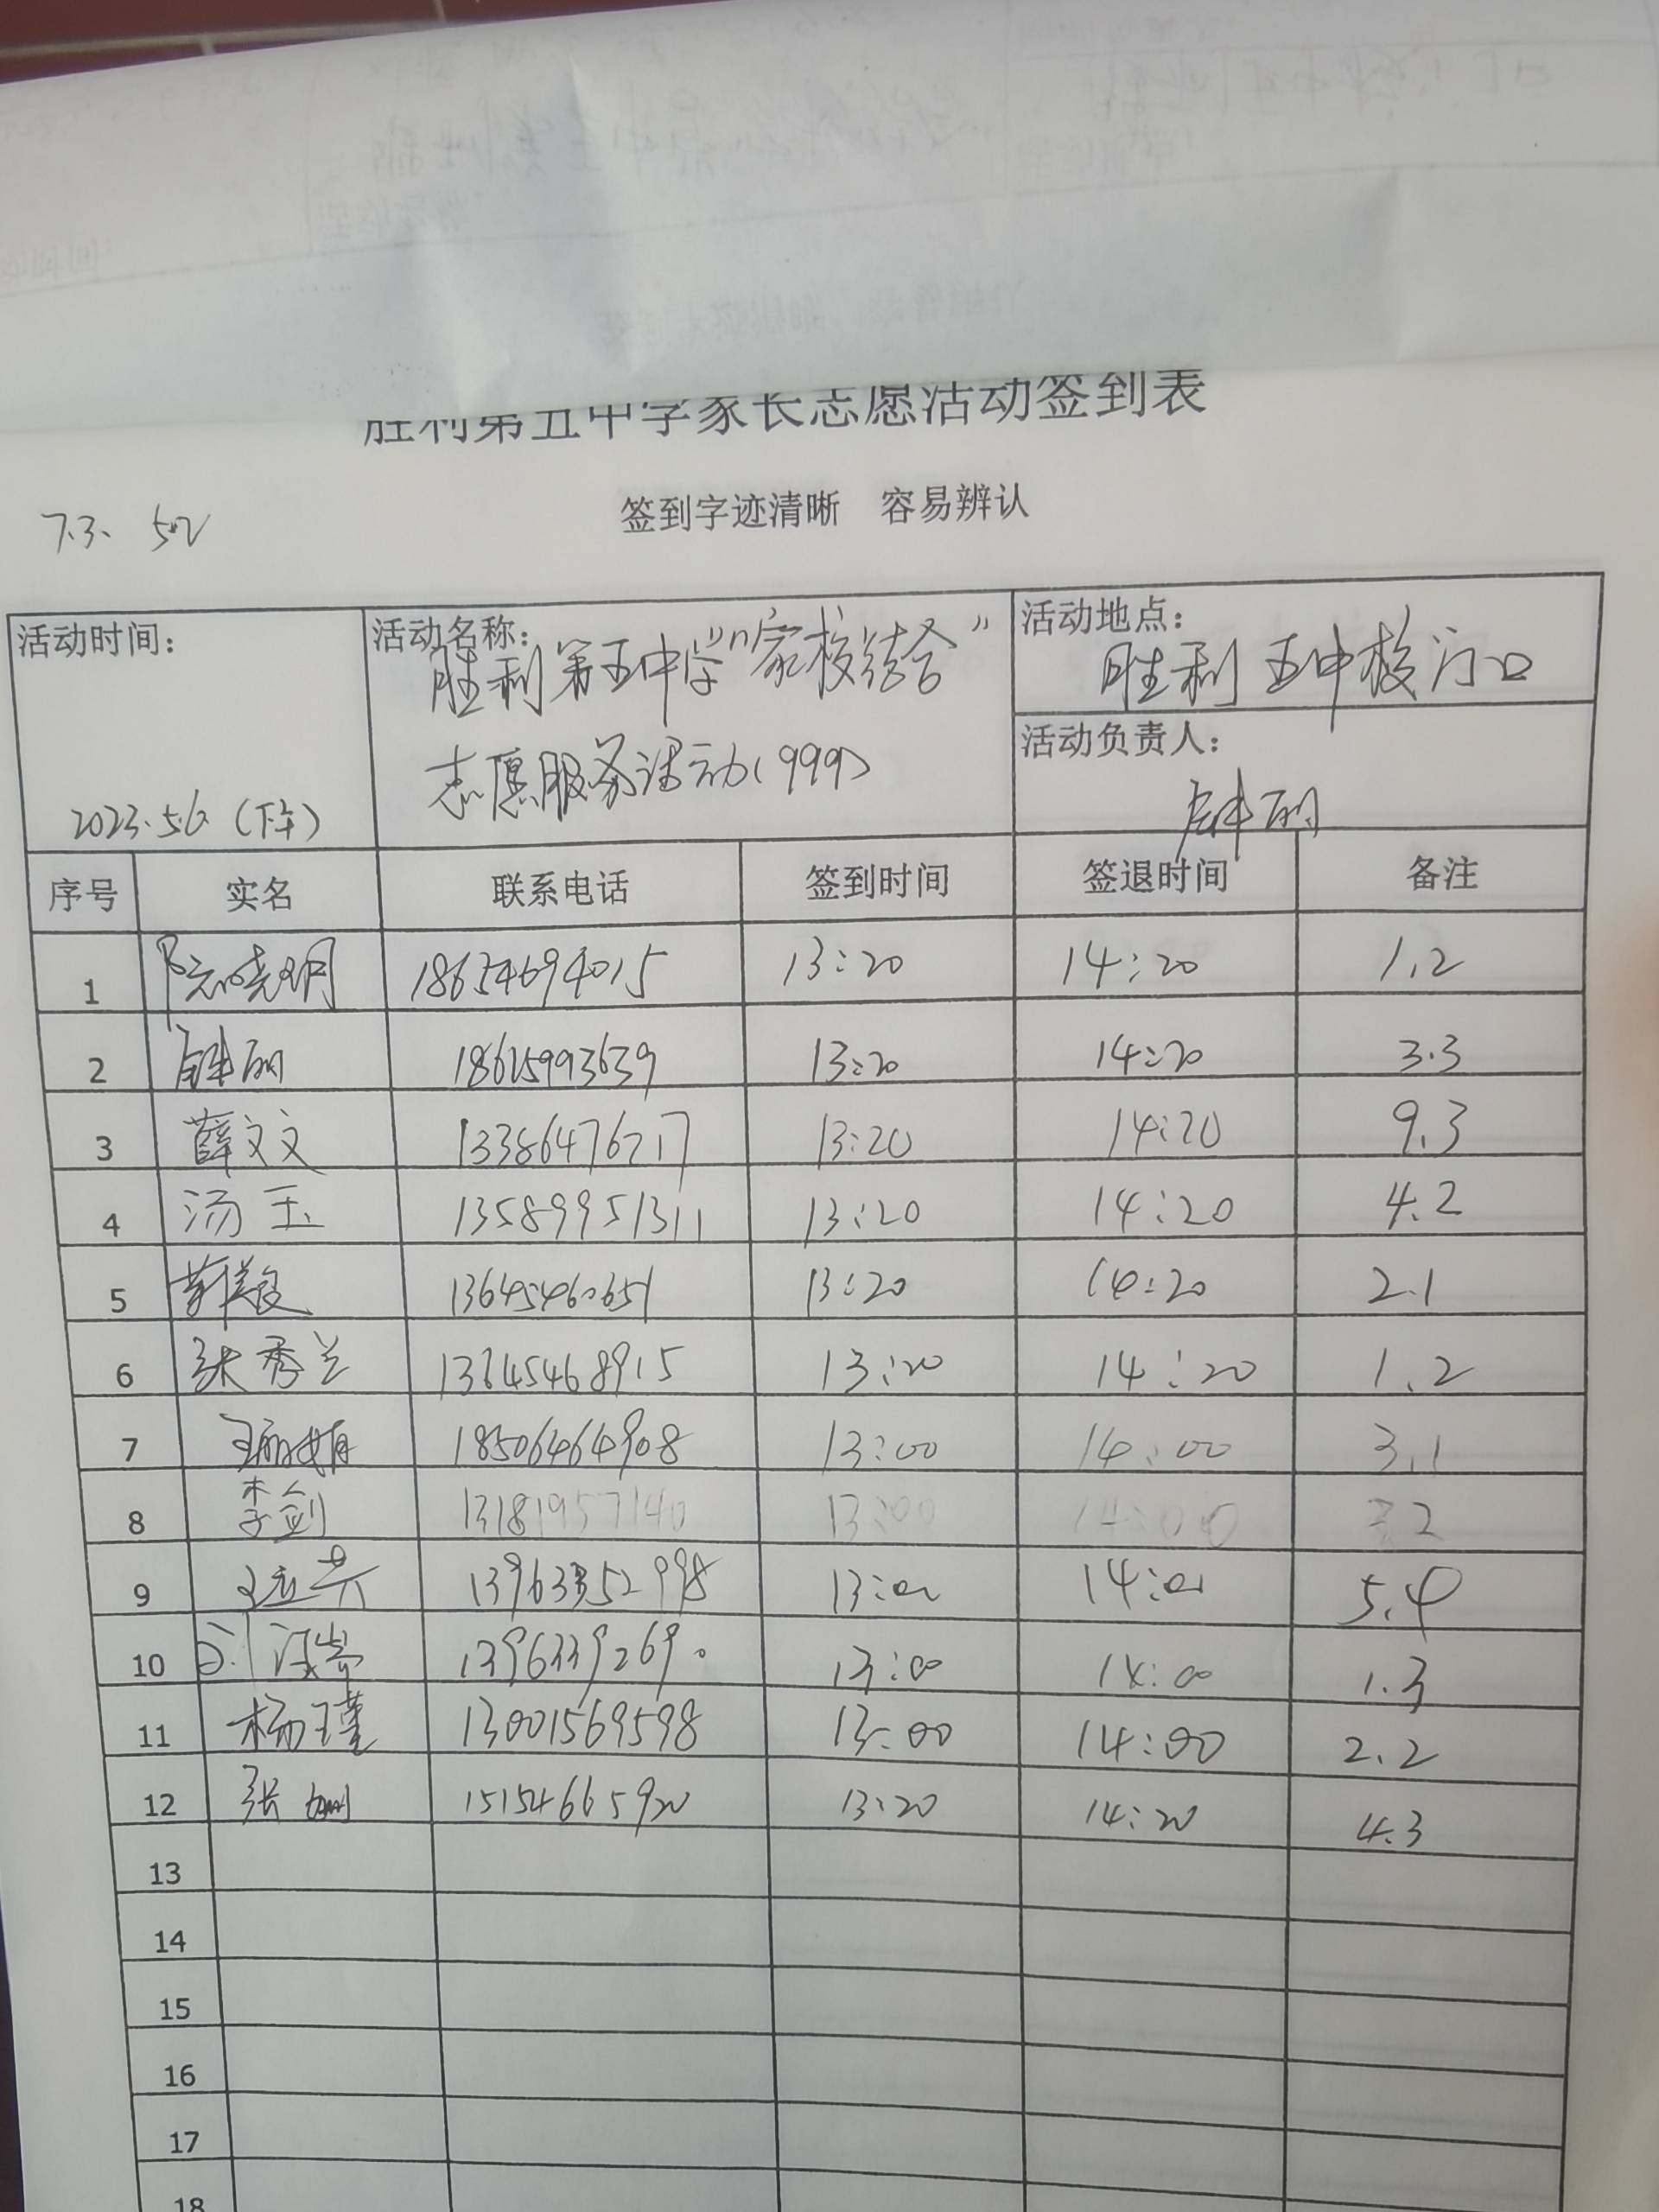 胜利第五中学家长志愿活动签到表
签到字迹清晰 容易辨认
7.3、 5.2
活动时间： 活动名称： 活动地点：
胜利第五中学“家校结合” 胜利五中校门口
志愿服务活动(999) 活动负责人：
2023.5.6（下午） 钟丽
序号 实名 联系电话 签到时间 签退时间 备注
1 阮晓玥 18654694015 13:20 14:20 1.2
2 钟丽 18615993639 13:20 14:20 3.3
3 薛文文 13386476717 13:20 14:20 9.3
4 汤玉 13589951311 13:20 14:20 4.2
5 13645460651 13:20 14:20 2.1
6 张秀兰 13645468915 13:20 14:20 1.2
7 王丽娟 18506464908 13:00 14:00 3.1
8 李剑 13181957140 13:00 14:00 2
9 13963352998 13:00 14:00 5.4
10 13963392690 13:00 14:00 1.3
11 杨瑾 13001569598 13:00 14:00 2.2
12 张 15154665920 13:20 14:20 4.3
13
14
15
16
17
18